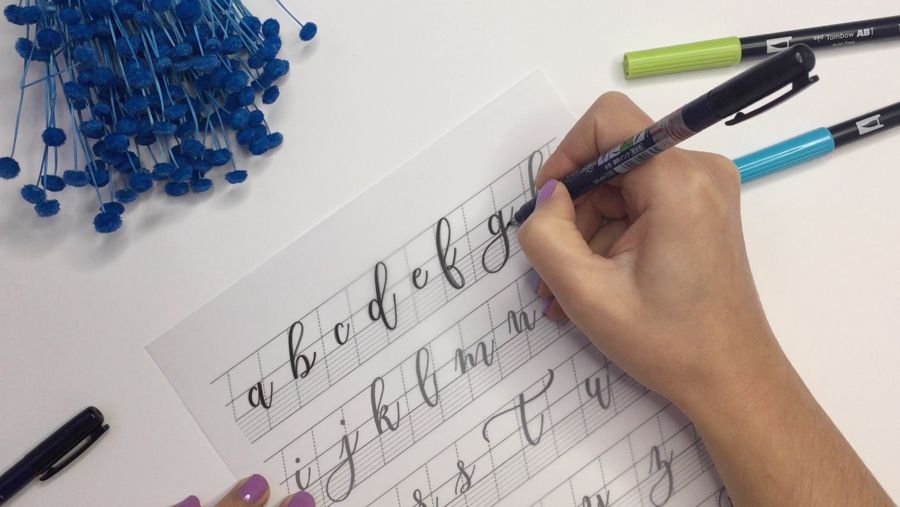 Tombow ABT
a b c d e f g h
i j k l m n
s t u
z